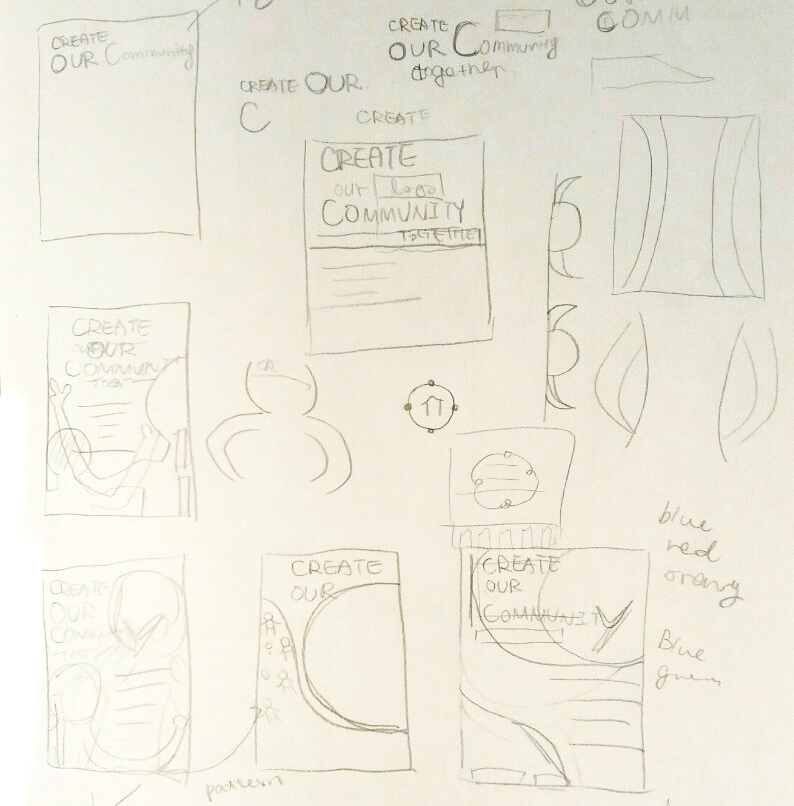 CREATE
OUR Community
CREATE OUR
C
CREATE
OUR Community
together
COMM
CREATE
CREATE
our logo
COMMUNITY
TOGETHER
CREATE
OUR
COMMUNIT
TOGET
CREATE
OUR
COMMUN
CREATE
OUR
CREATE
OUR
COMMUNITY
blue
red
orang
Blue
green
pattern